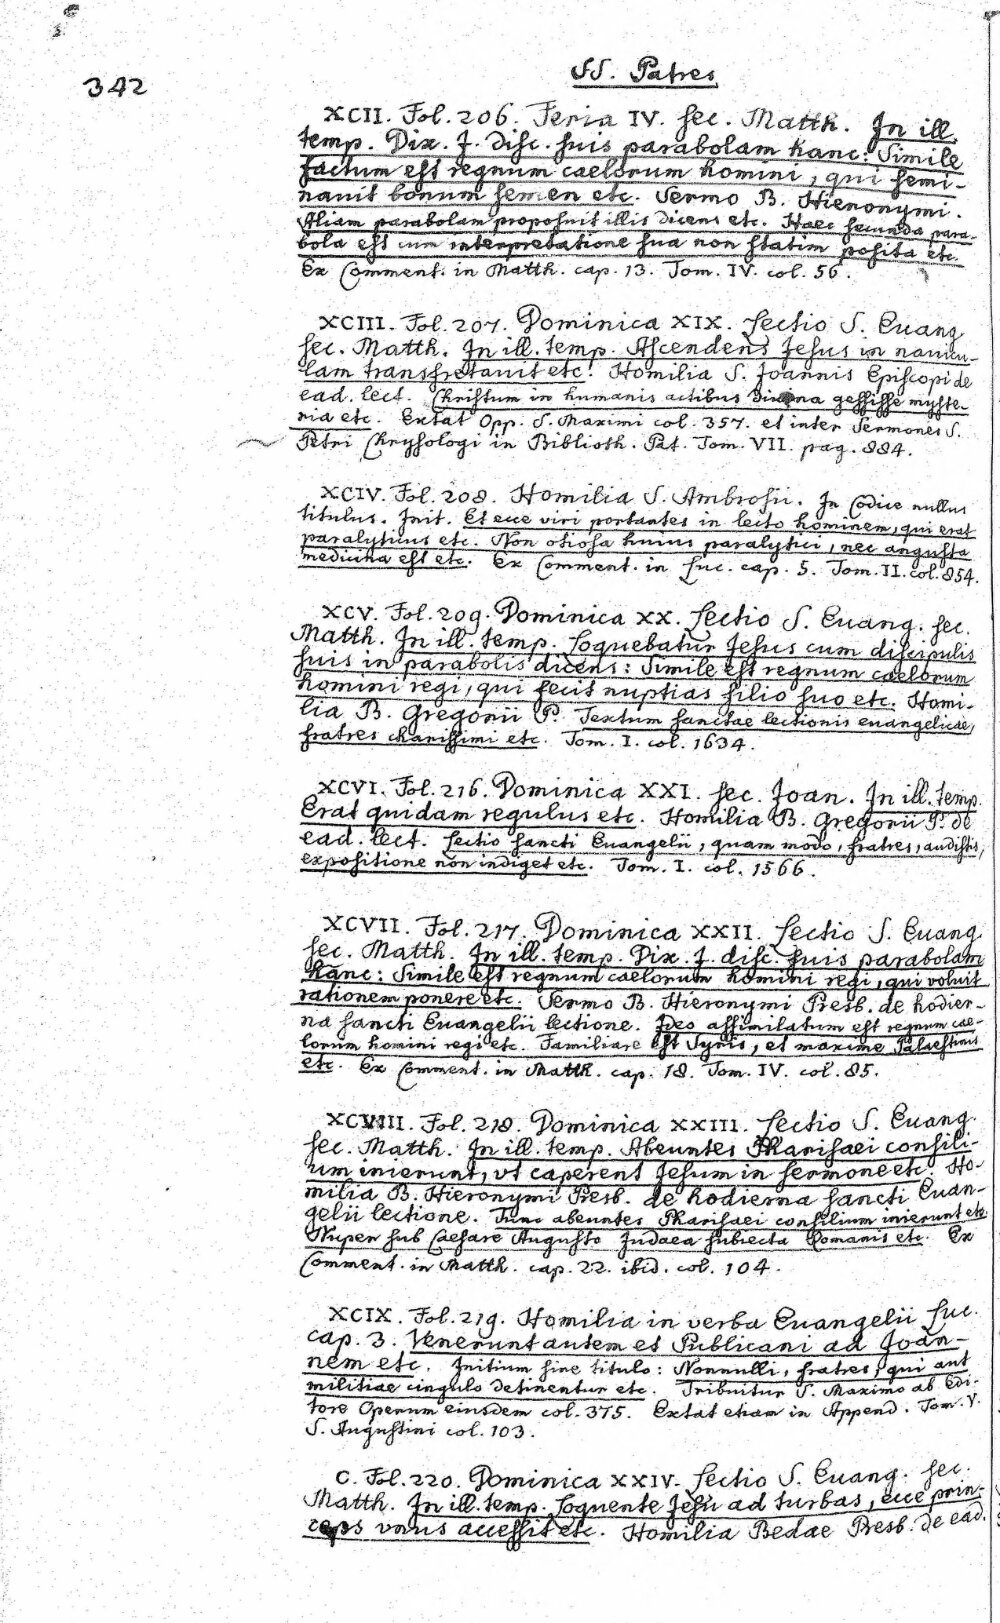 SS. Patres
342
XCII. Fol. 206. Feria IV. sec. Matth. In ill.
temp. Dix. J. disc. suis parabolam hanc: Simile
factum est regnum caelorum homini, qui semi-
navit bonum semen etc. Sermo B. Hieronymi.
Aliam parabolam proposuit illis dicens etc. Haec secunda para-
bola est cum interpretatione sua non statim posita etc.
Ex Comment. in Matth. cap. 13. Tom. IV. col. 56.
XCIII. Fol. 207. Dominica XIX. Lectio S. Euang.
sec. Matth. In ill. temp. Ascendens Jesus in navicu-
lam transfretavit etc. Homilia S. Joannis Episcopi de
ead. lect. Christum in humanis actibus divina gessisse myste-
ria etc. Extat Opp. S. Maximi col. 357. et inter Sermones S.
Petri Chrysologi in Biblioth. Pat. Tom. VII. pag. 884.
XCIV. Fol. 208. Homilia S. Ambrosii. In Codice nullus
titulus. Init. Et ecce viri portantes in lecto hominem, qui erat
paralyticus etc. Non otiosa huius paralytici, nec angusta
medicina est etc. Ex Comment. in Luc. cap. 5. Tom. II. col. 854.
XCV. Fol. 209. Dominica XX. Lectio S. Euang. sec.
Matth. In ill. temp. Loquebatur Jesus cum discipulis
suis in parabolis dicens: Simile est regnum caelorum
homini regi, qui fecit nuptias filio suo etc. Homi-
lia B. Gregorii P. Textum sanctae lectionis euangelicae,
fratres charissimi etc. Tom. I. col. 1634.
XCVI. Fol. 216. Dominica XXI. sec. Joan. In ill. temp.
Erat quidam regulus etc. Homilia B. Gregorii P. de
ead. lect. Lectio sancti Euangelii, quam modo, fratres, audistis,
expositione non indiget etc. Tom. I. col. 1566.
XCVII. Fol. 217. Dominica XXII. Lectio S. Euang.
sec. Matth. In ill. temp. Dix. J. disc. suis parabolam
hanc: Simile est regnum caelorum homini regi, qui voluit
rationem ponere etc. Sermo B. Hieronymi Presb. de hodier-
na sancti Euangelii lectione. Ideo assimilatum est regnum cae-
lorum homini regi etc. Familiare est Syris, et maxime Palaestinis
etc. Ex Comment. in Matth. cap. 18. Tom. IV. col. 85.
XCVIII. Fol. 218. Dominica XXIII. Lectio S. Euang.
sec. Matth. In ill. temp. Abeuntes Pharisaei consili-
um inierunt, vt caperent Jesum in sermone etc. Ho-
milia B. Hieronymi Presb. de hodierna sancti Euan-
gelii lectione. Tunc abeuntes Pharisaei consilium inierunt etc.
Nuper sub Caesare Augusto Judaea subiecta Romanis etc. Ex
Comment. in Matth. cap. 22. ibid. col. 104.
XCIX. Fol. 219. Homilia in verba Euangelii Luc.
cap. 3. Venerunt autem et Publicani ad Joan-
nem etc. Initium sine titulo: Nonnulli, fratres, qui aut
militiae cingulo detinentur etc. Tribuitur S. Maximo ab Edi-
tore Operum eiusdem col. 375. Extat etiam in Append. Tom. V.
S. Augustini col. 103.
C. Fol. 220. Dominica XXIV. Lectio S. Euang. sec.
Matth. In ill. temp. Loquente Jesu ad turbas, ecce prin-
ceps vnus accessit etc. Homilia Bedae Presb. de ead.